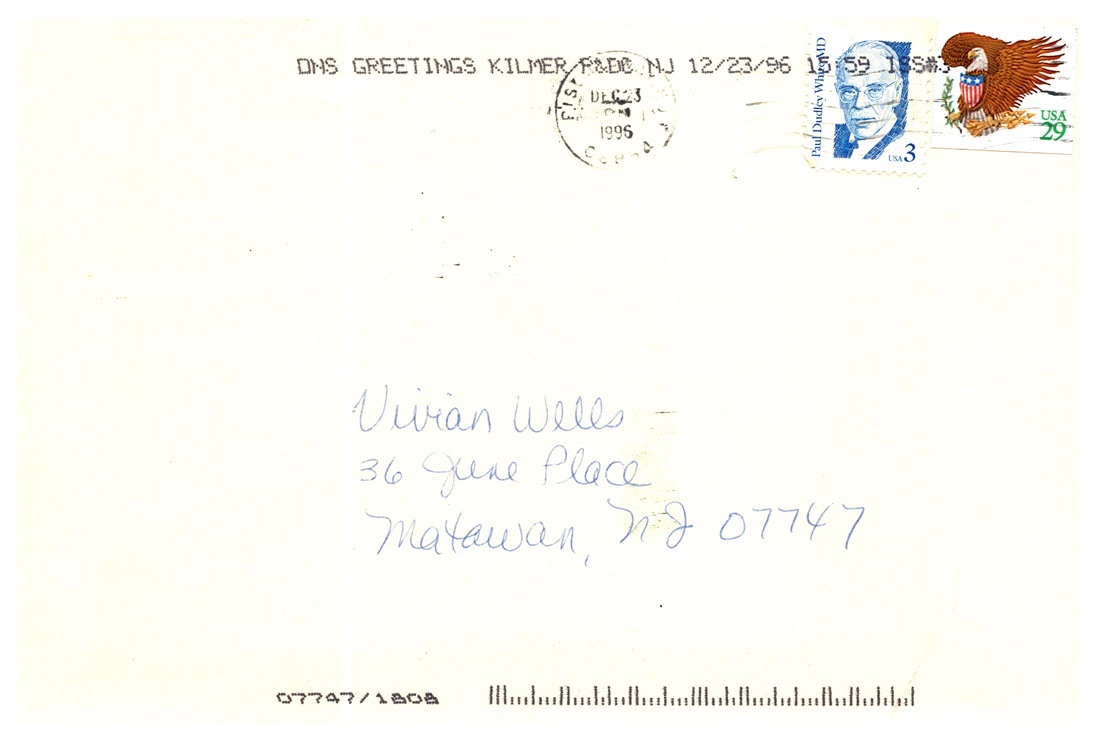 DNS GREETINGS KILMER P&DC NJ 12/23/96 15:59 ISS#3
DEC 23
1996
Paul Dudley White MD
USA 3
USA
29
Vivian Wells
36 June Place
Matawan, NJ 07747
07747/1808